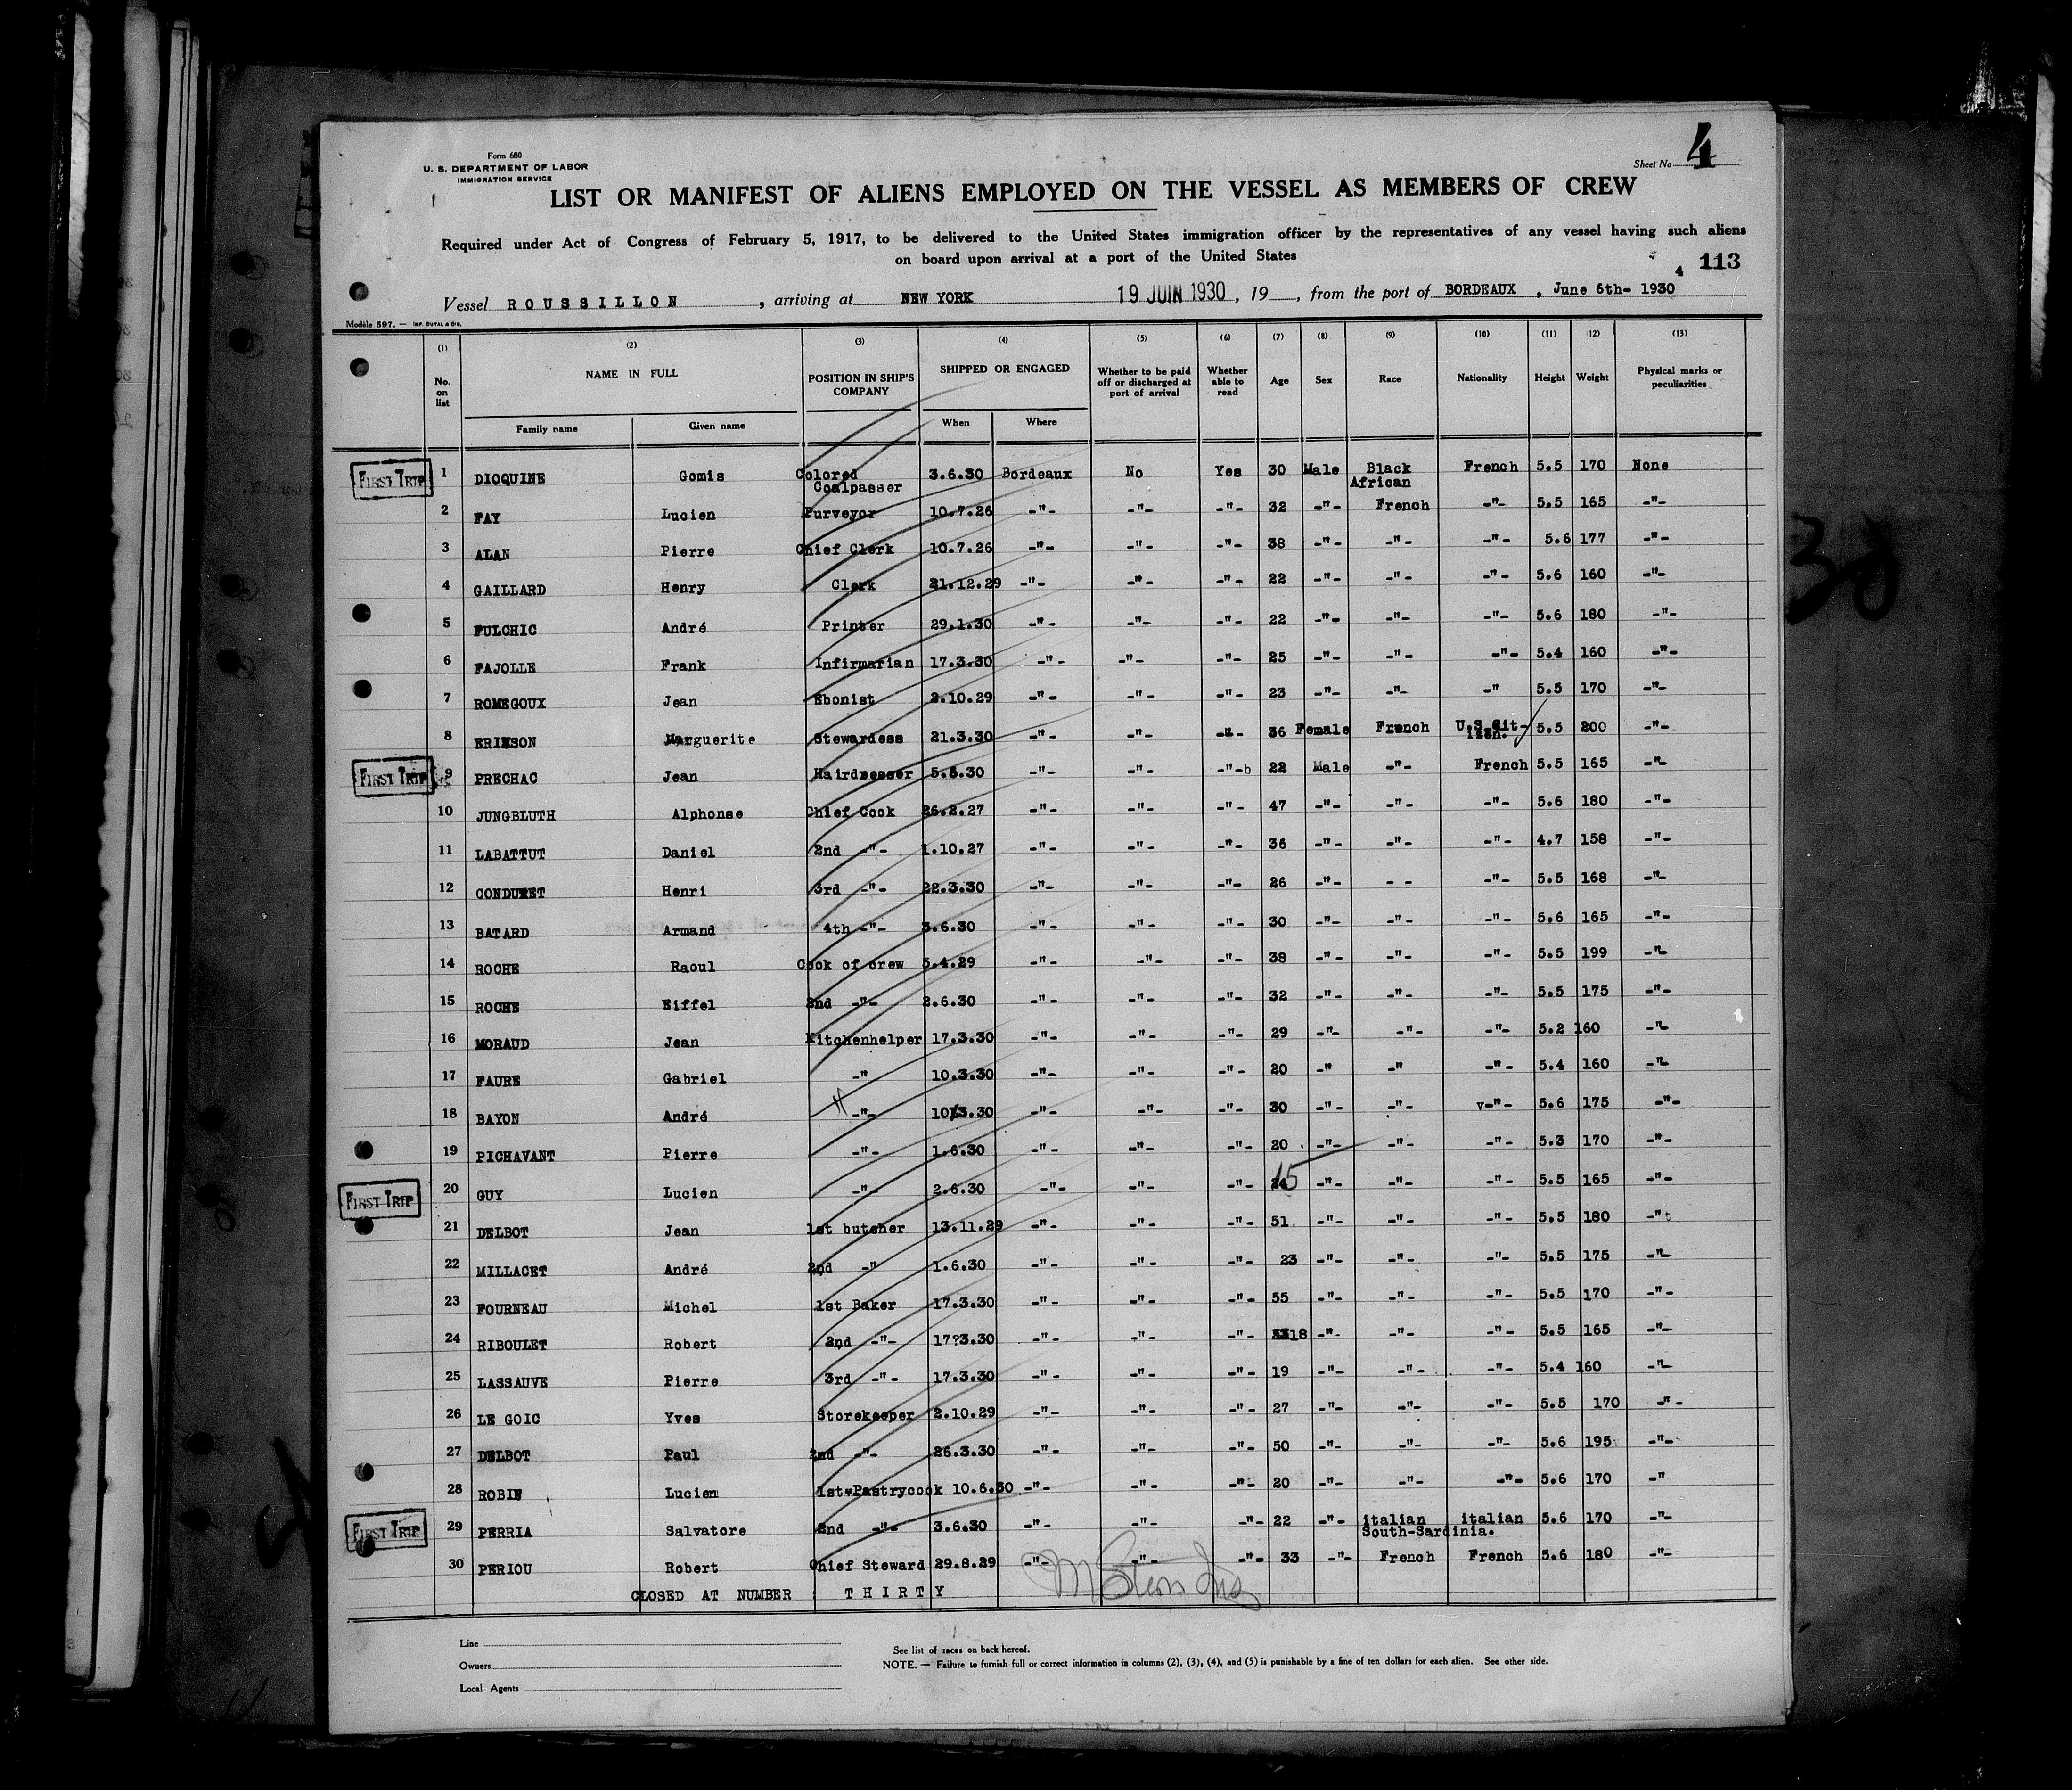 Form 680
U. S. DEPARTMENT OF LABOR
IMMIGRATION SERVICE
Sheet No 4
LIST OR MANIFEST OF ALIENS EMPLOYED ON THE VESSEL AS MEMBERS OF CREW
Required under Act of Congress of February 5, 1917, to be delivered to the United States immigration officer by the representatives of any vessel having such aliens
on board upon arrival at a port of the United States
4 113
Vessel ROUSSILLON , arriving at NEW YORK 19 JUIN 1930 , 19 , from the port of BORDEAUX , June 6th- 1930
Modèle 597. — IMP. DUVAL & BIS.
(1) (2) (3) (4) (5) (6) (7) (8) (9) (10) (11) (12) (13)
No. on list NAME IN FULL POSITION IN SHIP'S COMPANY SHIPPED OR ENGAGED Whether to be paid off or discharged at port of arrival Whether able to read Age Sex Race Nationality Height Weight Physical marks or peculiarities
Family name Given name When Where
FIRST TRIP 1 DIOQUINE Gomis Colored Coalpasser 3.6.30 Bordeaux No Yes 30 Male Black African French 5.5 170 None
2 FAY Lucien Purveyor 10.7.26 -"- -"- -"- 32 -"- French -"- 5.5 165 -"-
3 ALAN Pierre Chief Clerk 10.7.26 -"- -"- -"- 38 -"- -"- -"- 5.6 177 -"-
4 GAILLARD Henry Clerk 21.12.29 -"- -"- -"- 22 -"- -"- -"- 5.6 160 -"-
5 FULCHIC André Printer 29.1.30 -"- -"- -"- 22 -"- -"- -"- 5.6 180 -"-
6 FAJOLLE Frank Infirmarian 17.3.30 -"- -"- -"- 25 -"- -"- -"- 5.4 160 -"-
7 ROMEGOUX Jean Ebonist 2.10.29 -"- -"- -"- 23 -"- -"- -" 5.5 170 -"-
8 ERIKSON Marguerite Stewardess 21.3.30 -"- -"- -"- 36 Female French U.S.Cit-izen. 5.5 200 -"-
FIRST TRIP 9 PRECHAC Jean Hairdresser 5.6.30 -"- -"- -"-b 22 Male -"- French 5.5 165 -"-
10 JUNGBLUTH Alphonse Chief Cook 26.2.27 -"- -"- -"- 47 -"- -"- -"- 5.6 180 -"-
11 LABATTUT Daniel 2nd -"- 1.10.27 -"- -"- -"- 36 -"- -"- -"- 4.7 158 -"-
12 CONDURET Henri 3rd -"- 22.3.30 -"- -"- -"- 26 -"- - - -"- 5.5 168 -"-
13 BATARD Armand 4th -"- 3.6.30 -"- -"- -"- 30 -"- -"- -"- 5.6 165 -"-
14 ROCHE Raoul Cook of crew 5.4.29 -"- -"- -"- 38 -"- -"- -"- 5.5 199 -"-
15 ROCHE Eiffel 2nd -"- 2.6.30 -"- -"- -"- 32 -"- -"- -"- 5.5 175 -"-
16 MORAUD Jean Kitchenhelper 17.3.30 -"- -"- -"- 29 -"- -"- -"- 5.2 160 -"-
17 FAURE Gabriel -" 10.3.30 -"- -"- -"- 20 -" -" -"- 5.4 160 -"-
18 BAYON André -"- 10.3.30 -"- -"- -"- 30 -"- -"- v-"- 5.6 175 -"-
19 PICHAVANT Pierre -"- 1.6.30 -"- -"- -"- 20 -"- -"- -"- 5.3 170 -"-
FIRST TRIP 20 GUY Lucien -"- 2.6.30 -"- -"- -"- 15 -"- -"- -"- 5.5 165 -"-
21 DELBOT Jean 1st butcher 13.11.29 -"- -"- -"- 51 -"- -"- -"- 5.5 180 -"-
22 MILLACET André 2nd -" 1.6.30 -"- -"- -"- 23 -"- -"- -"- 5.5 175 -"-
23 FOURNEAU Michel 1st Baker 17.3.30 -"- -"- -"- 55 -"- -"- -"- 5.5 170 -"-
24 RIBOULET Robert 2nd -"- 17?3.30 -"- -"- -"- 18 -"- -"- -"- 5.5 165 -"-
25 LASSAUVE Pierre 3rd -"- 17.3.30 -"- -"- -"- 19 -"- -"- -"- 5.4 160 -"-
26 LE GOIC Yves Storekeeper 2.10.29 -"- -"- -"- 27 -"- -"- -"- 5.5 170 -"-
27 DELBOT Paul 2nd -"- 26.3.30 -"- -"- -"- 50 -"- -"- -"- 5.6 195 -"-
28 ROBIN Lucien 1st Pastrycook 10.6.30 -"- -"- -"- 20 -"- -"- -"- 5.6 170 -"
FIRST TRIP 29 PERRIA Salvatore 2nd -"- 3.6.30 -"- -"- -"- 22 -"- italian South-Sardinia. italian 5.6 170 -"-
30 PERIOU Robert Chief Steward 29.8.29 -"- -"- -"- 33 -"- French French 5.6 180 -"-
CLOSED AT NUMBER THIRTY
Line
Owners
Local Agents
See list of races on back hereof.
NOTE. — Failure to furnish full or correct information in columns (2), (3), (4), and (5) is punishable by a fine of ten dollars for each alien. See other side.